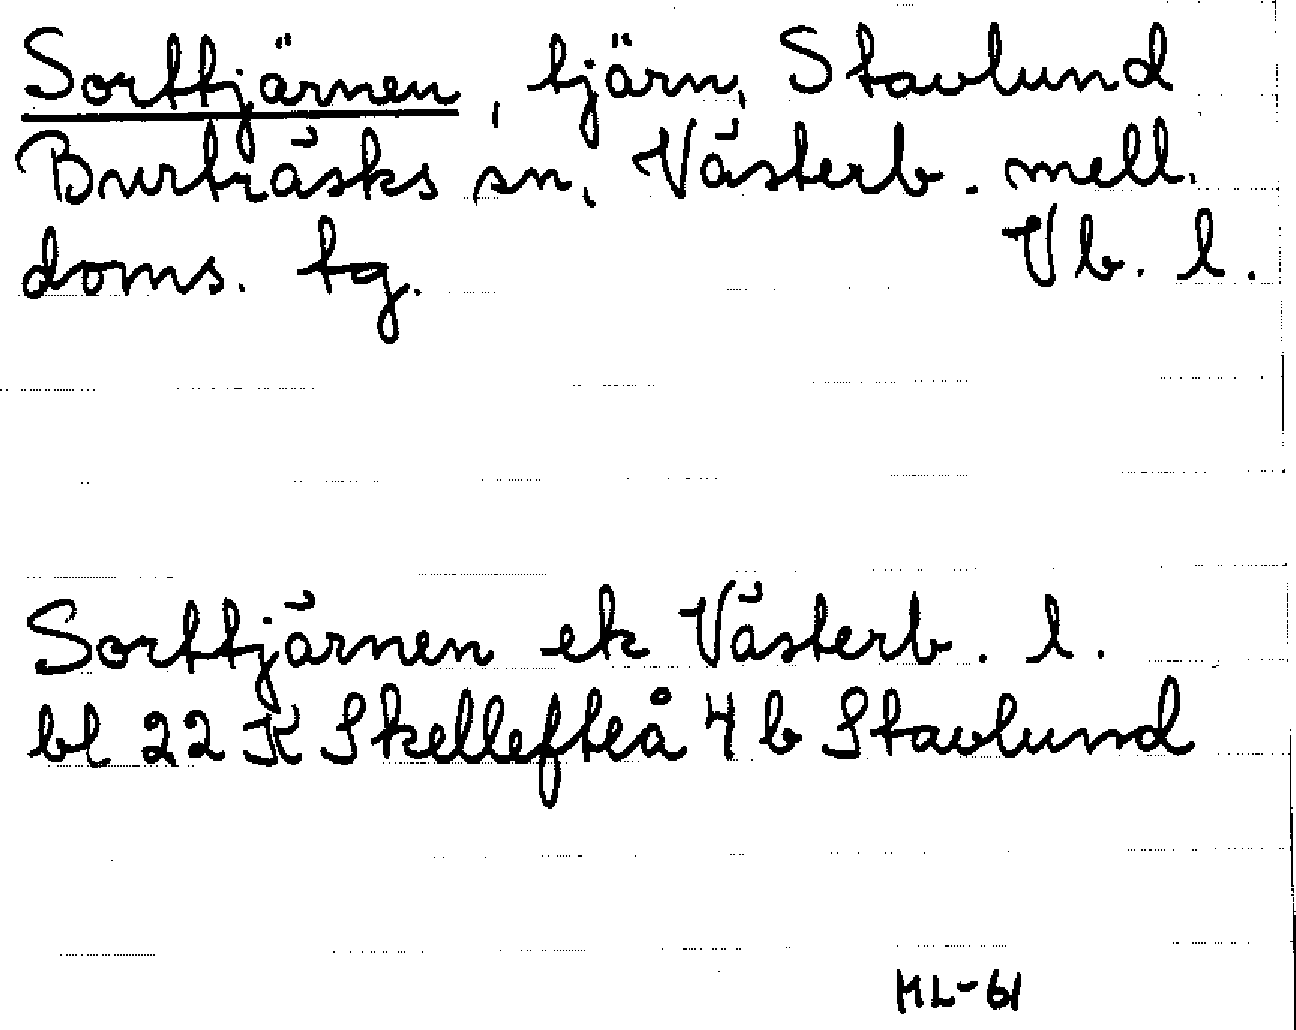 Sorttjärnen, tjärn, Stavlund
Burträsks sn, Västerb. mell.
doms. tg. Vb. l.
Sorttjärnen ek Västerb. l.
bl 22 K Skellefteå 4 b Stavlund
ML-61